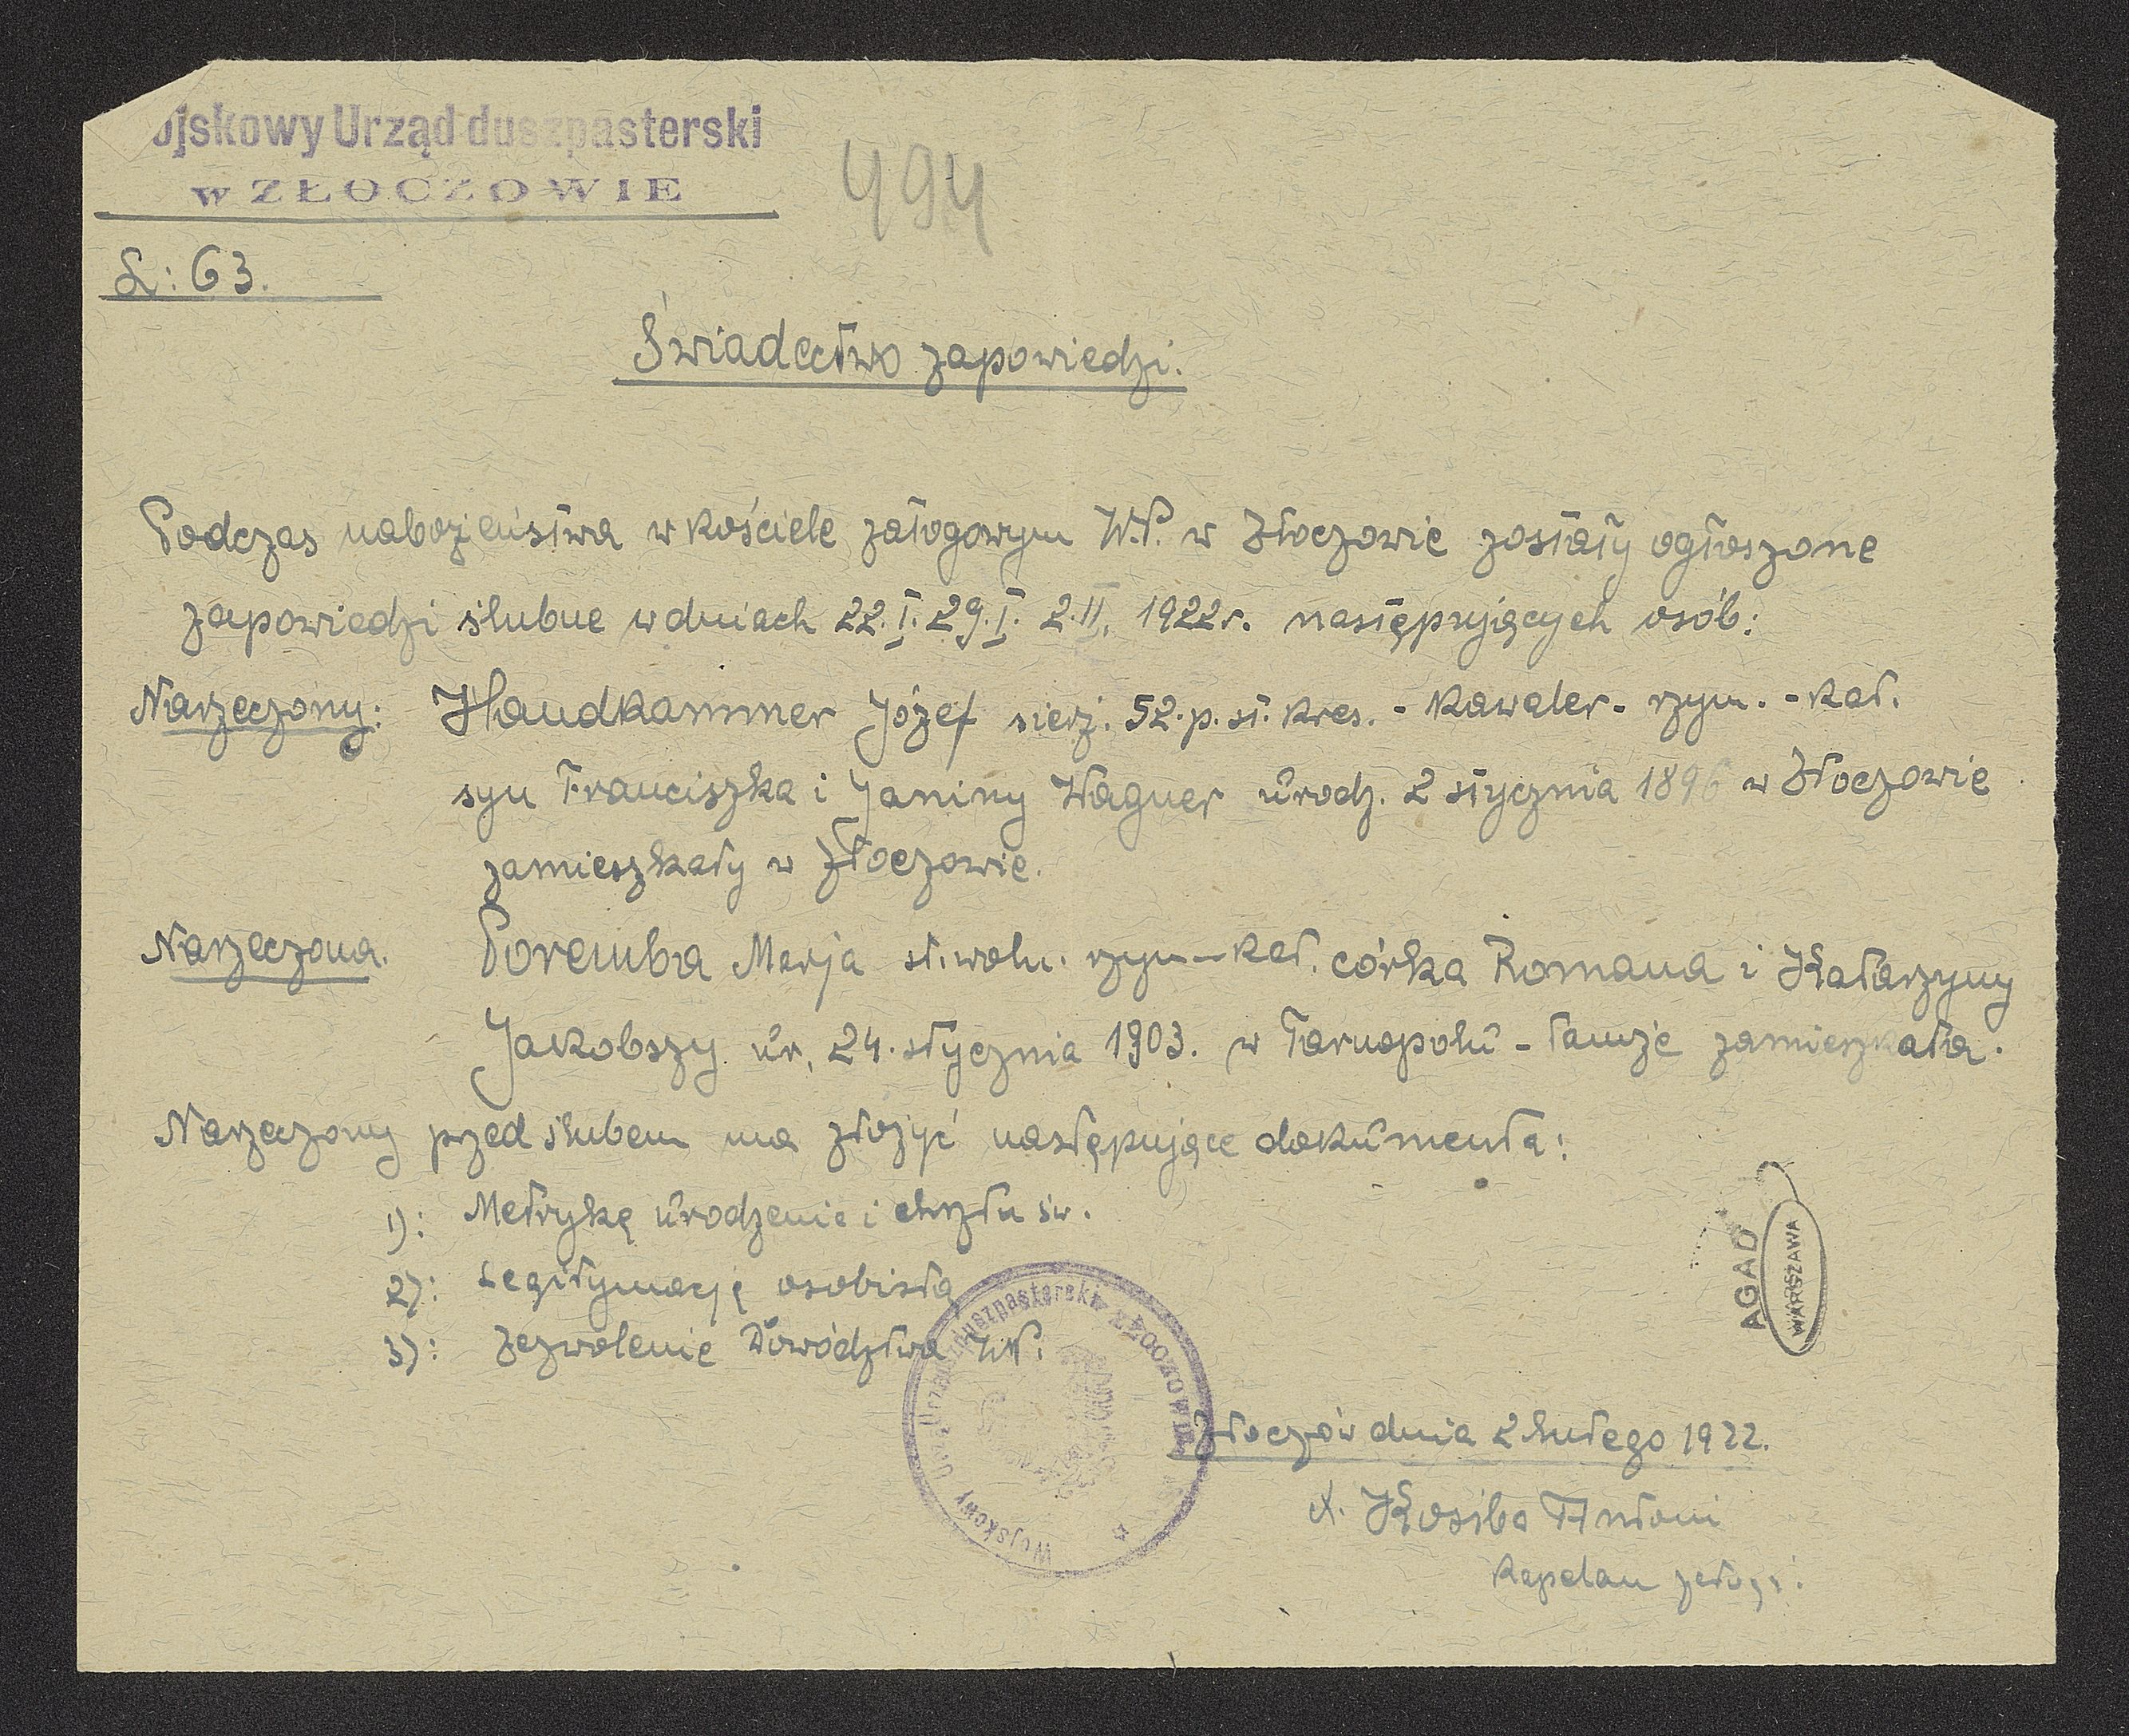 ojskowy Urząd duszpasterski
w ZŁOCZOWIE
494
L: 63.
Świadectwo zapowiedzi.
Podczas nabożeństwa w kościele załogowym W.P. w Złoczowie zostały ogłoszone
zapowiedzi ślubne w dniach 22.I. 29.I. 2.II. 1922r. następujących osób:
Narzeczony: Handkammer Józef sierż. 52.p.st.kres. - kawaler - rzym. - kat.
syn Franciszka i Janiny Wagner urodz. 2 stycznia 1896 w Złoczowie
zamieszkały w Złoczowie.
Narzeczona. Poremba Marja st. woln. rzym - kat. córka Romana i Katarzyny
Jakobszy ur. 24. stycznia 1903. w Tarnopolu - tamże zamieszkała.
Narzeczony przed ślubem ma złożyć następujące dokumenta:
1): Metrykę urodzenia i chrztu św.
2): Legitymację osobistą
3): Zezwolenie Dowództwa W.P.
Wojskowy Urząd duszpasterski w ZŁOCZOWIE
AGAD
WARSZAWA
Złoczów dnia 2 lutego 1922.
X. Kosiba Antoni
Kapelan załogi